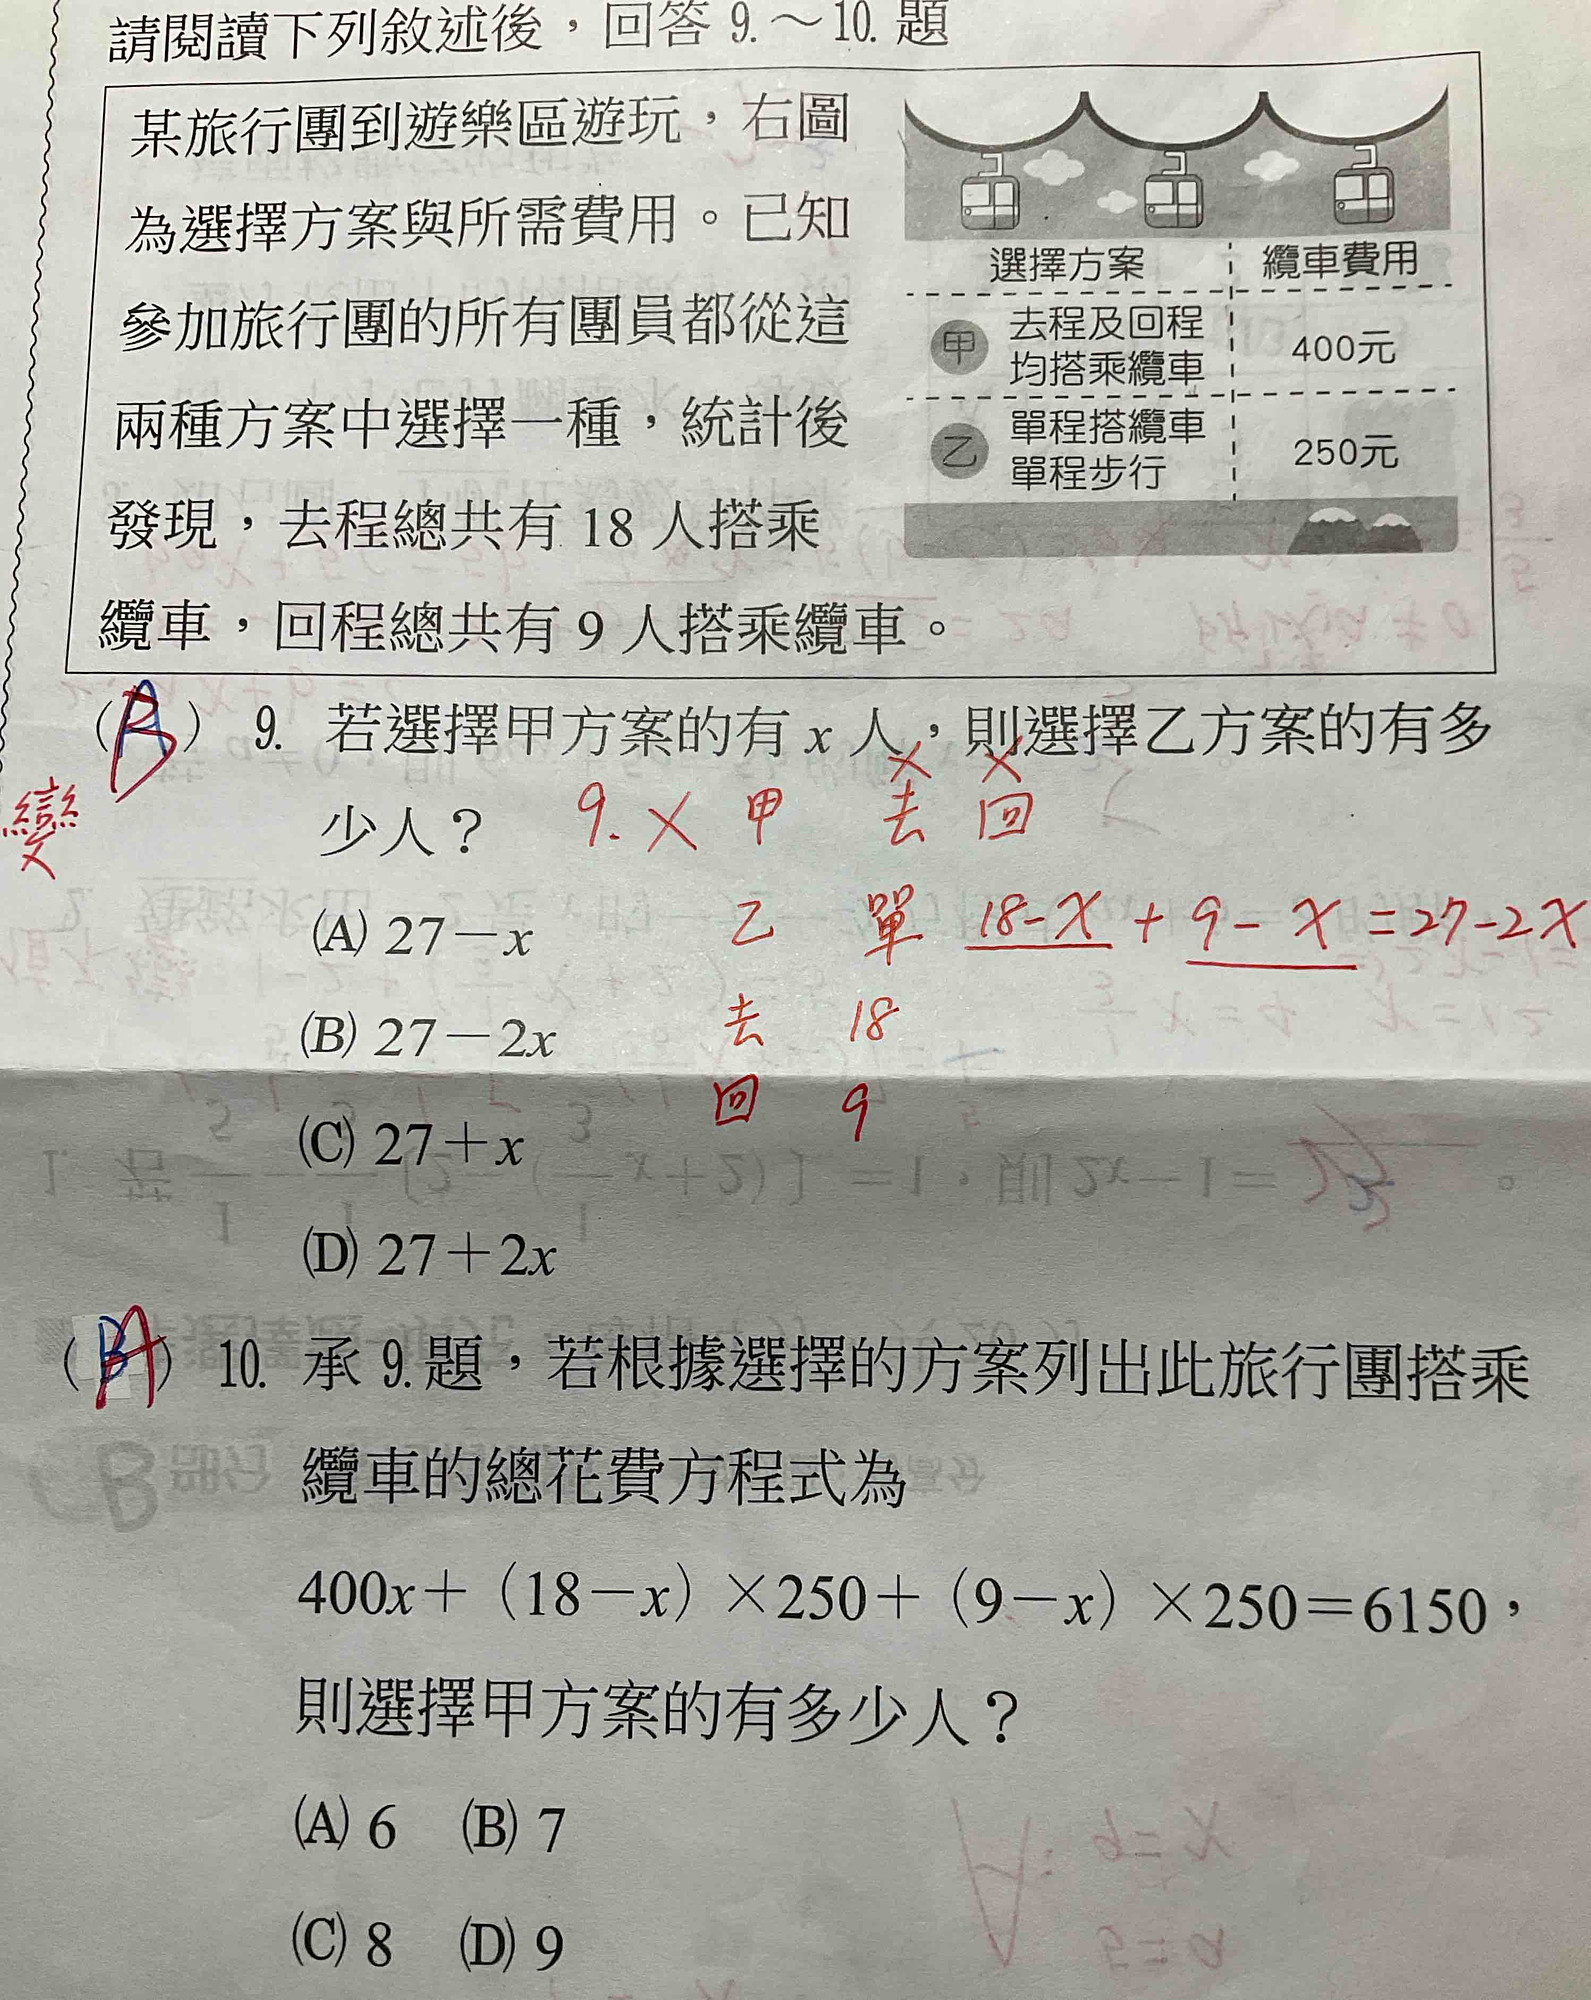 請閱讀下列敘述後，回答 9.～10. 題
某旅行團到遊樂區遊玩，右圖
為選擇方案與所需費用。已知
參加旅行團的所有團員都從這
兩種方案中選擇一種，統計後
發現，去程總共有 18 人搭乘
纜車，回程總共有 9 人搭乘纜車。
選擇方案 纜車費用
甲 去程及回程
均搭乘纜車 400元
乙 單程搭纜車
單程步行 250元
(B) 9. 若選擇甲方案的有 x 人，則選擇乙方案的有多
少人？
變
x x
9. x 甲 去 回
(A) 27－x
乙 單 18-x + 9-x = 27-2x
(B) 27－2x
去 18
回 9
(C) 27＋x
(D) 27＋2x
(A) 10. 承 9. 題，若根據選擇的方案列出此旅行團搭乘
纜車的總花費方程式為
400x＋（18－x）×250＋（9－x）×250＝6150，
則選擇甲方案的有多少人？
(A) 6 (B) 7
(C) 8 (D) 9